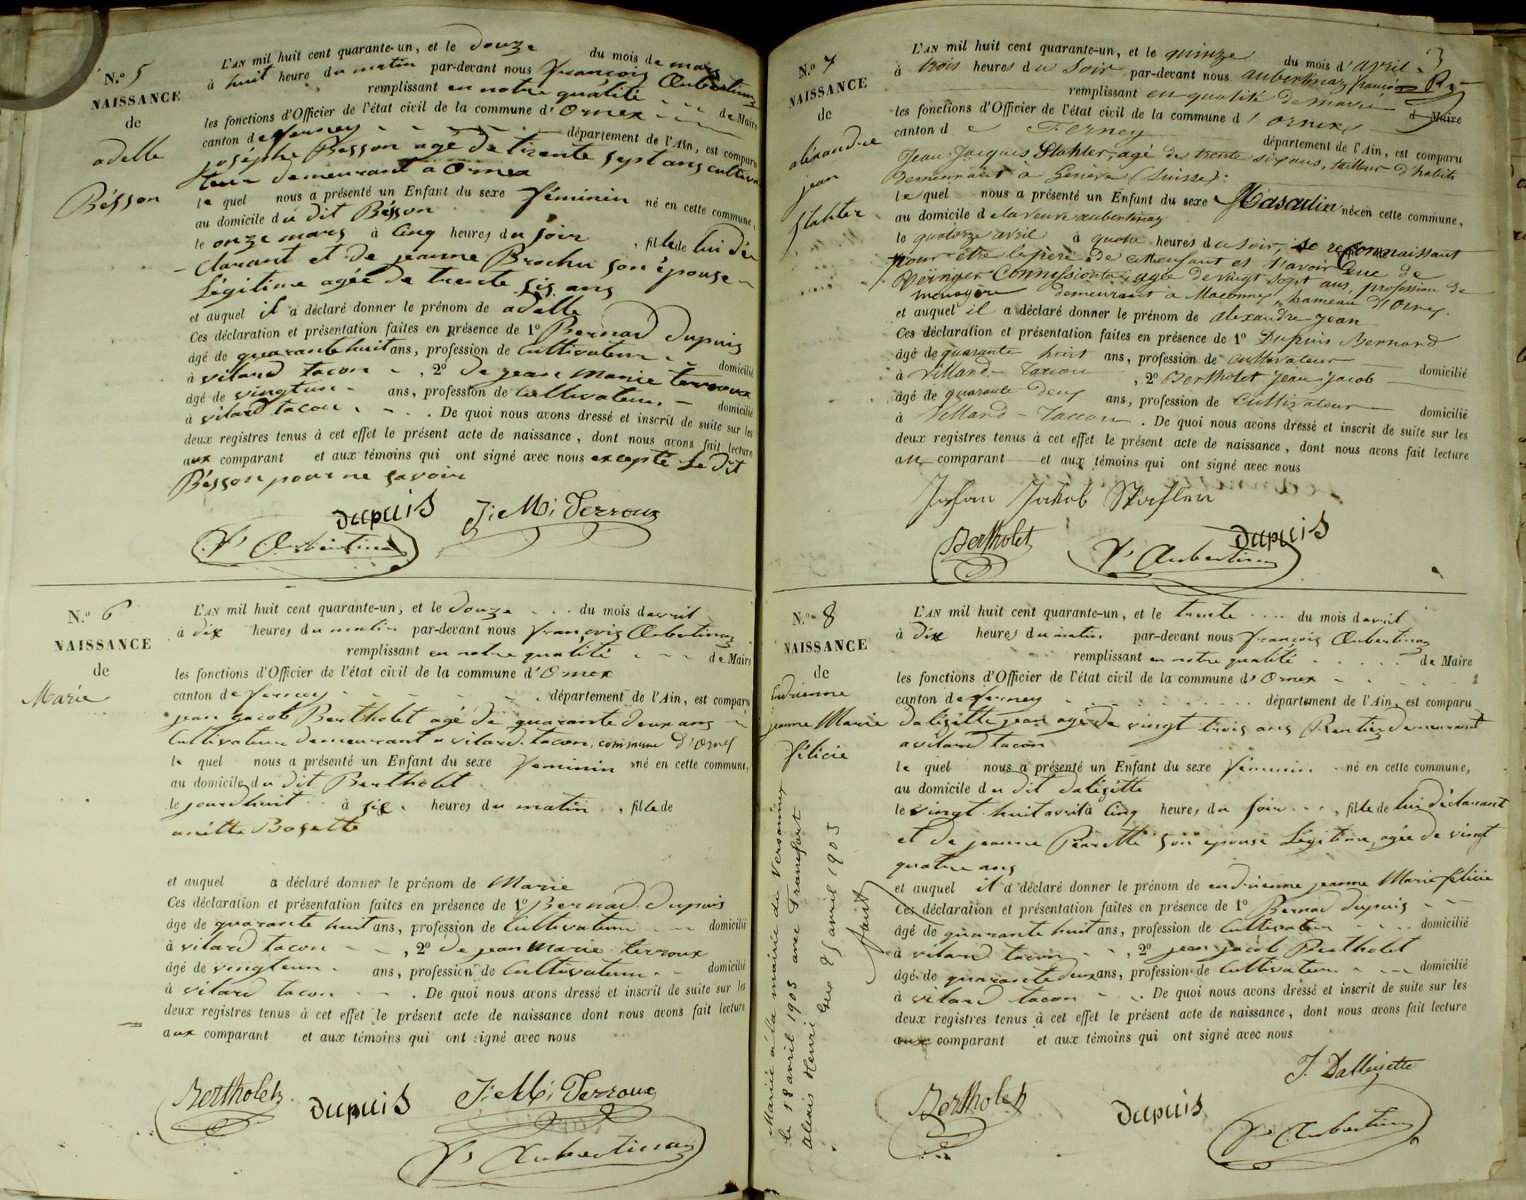 N.º 5
NAISSANCE
de
adelle
Bésson
L'AN mil huit cent quarante-un, et le douze du mois de mars
à huit heure du matin par-devant nous François Aubertinaz
remplissant en notre qualité de Maire
les fonctions d'Officier de l'état civil de la commune d'Ornex
canton de ferney département de l'Ain, est comparu
joséphe Bésson agé de trente sept ans cultiva
teur demeurant à Ornex
lequel nous a présenté un Enfant du sexe féminin né en cette commune,
au domicile du dit Bésson
le onze mars à cinq heures du soir, fille de lui dé
clarant et de jeanne Brochu son épouse
Légitime agée de trente six ans
et auquel il a déclaré donner le prénom de adelle
Ces déclaration et présentation faites en présence de 1º Bernard dupuis
âgé de quarante huit ans, profession de cultivateur domicilié
à vilard tacon, 2º de jean Marie terroux
âgé de vingt un ans, profession de cultivateur domicilié
à vilard tacon. De quoi nous avons dressé et inscrit de suite sur les
deux registres tenus à cet effet le présent acte de naissance, dont nous avons fait lecture
aux comparant et aux témoins qui ont signé avec nous excepté Le dit
Bésson pour ne savoir
Dupuis J: M: Terroux
fs Aubertinaz
N.º 6
NAISSANCE
de
Marie
L'AN mil huit cent quarante-un, et le douze du mois d'avril
à dix heures du matin par-devant nous françois Aubertinaz
remplissant en notre qualité de Maire
les fonctions d'Officier de l'état civil de la commune d'Ornex
canton de ferney département de l'Ain, est comparu
jean jacob Bertholet agé de quarante deux ans
cultivateur demeurant a vilard tacon, commune d'Ornex
lequel nous a présenté un Enfant du sexe féminin né en cette commune,
au domicile du dit Bertholet
le jourdhuit à six heures du matin, fille de
anétte Bosette
et auquel a déclaré donner le prénom de Marie
Ces déclaration et présentation faites en présence de 1º Bernard dupuis
âgé de quarante huit ans, profession de cultivateur domicilié
à vilard tacon, 2º de jean Marie terroux
âgé de vingt un ans, profession de cultivateur domicilié
à vilard tacon. De quoi nous avons dressé et inscrit de suite sur les
deux registres tenus à cet effet le présent acte de naissance dont nous avons fait lecture
aux comparant et aux témoins qui ont signé avec nous
Bertholet Dupuis J: M: Terroux
fs Aubertinaz
3
N.º 7
NAISSANCE
de
aléxandre
jean
Stahler
L'AN mil huit cent quarante-un, et le quinze du mois d'avril
à trois heures du Soir par-devant nous aubertinaz françois
remplissant en qualité de maire de Maire
les fonctions d'Officier de l'état civil de la commune d'ornex
canton de Ferney département de l'Ain, est comparu
Jean Jacques Stahler, agé de trente six ans, tailleur d'habits
Demeurant à Genève (Suisse)
lequel nous a présenté un Enfant du sexe Masculin né en cette commune,
au domicile de la veuve aubertinaz
le quatorze avril à quatre heures du soir, se reconnaissant
pour être le père de cet enfant et l'avoir eu de
agée de vingt sept ans, profession de
ménagère demeurant à Maconnex, hameau d'Ornex.
et auquel il a déclaré donner le prénom de alexandre jean
Ces déclaration et présentation faites en présence de 1º Dupuis Bernard
âgé de quarante huit ans, profession de cultivateur domicilié
à Villard-Taccon, 2º Bertholet Jean jacob
âgé de quarante deux ans, profession de cultivateur domicilié
à Villard-Taccon. De quoi nous avons dressé et inscrit de suite sur les
deux registres tenus à cet effet le présent acte de naissance, dont nous avons fait lecture
au comparant et aux témoins qui ont signé avec nous
Jakob
Bertholet fs Aubertinaz Dupuis
N.º 8
NAISSANCE
de
Endrienne
jeanne Marie
félicie
Mariée à la mairie de Versonnex
le 18 avril 1903 avec Francfort
Alexis Henri Gex 25 avril 1903
L'AN mil huit cent quarante-un, et le trente du mois d'avril
à dix heures du matin par-devant nous françois Aubertinaz
remplissant en notre qualité de Maire
les fonctions d'Officier de l'état civil de la commune d'Ornex
canton de ferney département de l'Ain, est comparu
dalézétte jean agé de vingt trois ans Rentier demeurant
a vilard tacon
lequel nous a présenté un Enfant du sexe féminin né en cette commune,
au domicile du dit dalézétte
le vingt huit avril à cinq heures du soir, fille de lui déclarant
et de jeanne Péarette son épouse Légitime, agée de vingt
quatre ans
et auquel il a déclaré donner le prénom de endrienne jeanne Marie félicie
Ces déclaration et présentation faites en présence de 1º Bernard dupuis
âgé de quarante huit ans, profession de cultivateur domicilié
à vilard tacon, 2º jean jacob Bertholet
âgé de quarante deux ans, profession de cultivateur domicilié
à vilard tacon. De quoi nous avons dressé et inscrit de suite sur les
deux registres tenus à cet effet le présent acte de naissance, dont nous avons fait lecture
aux comparant et aux témoins qui ont signé avec nous
J. Dallézette
Bertholet Dupuis fs Aubertinaz